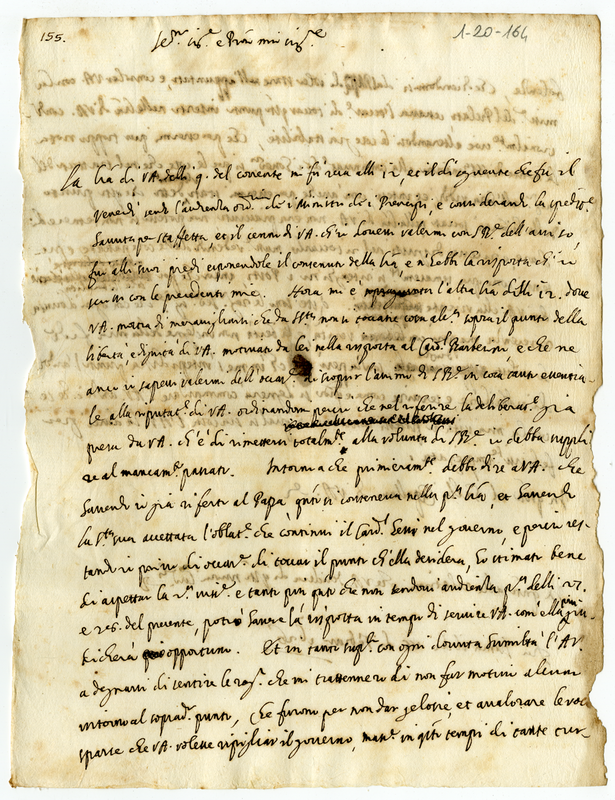 155.
1-20-164
Ser.mo Sig.re e Pron mio Sig.re
La l'ra di VA. delli 9. del corrente mi fù resa alli 12, et il dì seguente che fù il
Venerdì hebbi l'audienza ord.ria de i Ministri de i Prencipi, e considerando la spedit.ne
havuta per staffetta, et il cenno di VA. ch'io dovessi valermi con S.B.ne dell'avviso,
fui alli suoi piedi esponendole il contenuto della l'ra, e n'hebbi la risposta ch'io
scrissi con le precedenti mie. Hora mi è l'altra l'ra delli 12. dove
VA. mostra di meravigliarsi che da S.Stà non si toccasse cosa alc.a sopra il punto della
libertà, e dignità di VA. motivato da lei nella risposta al Card.l Barberino, e che ne
anco io sapessi valermi dell'occas.ne di scoprir l'animo di S.B.ne in cosa tanto essentia-
le alla riputat.ne di VA. ordinandomi perciò che nel riferire la deliberat.ne già
presa da VA. ch'è di rimettersi totalm.te alla volontà di S.B.ne io debba suppli-
re al mancam.to passato. Intorno a che primieram.te debbo dire a VA. che
havendo io già riferto al Papa q.nto si conteneva nella p.ma l'ra, et havendo
la S.tà sua accettata l'oblat.ne che continui il Card.l nel governo, e perciò res-
tando io privo di occas.ne di toccar il punto ch'ella desidera, ho stimato bene
di aspettar la e tanto più q.nto che non havendo audienza p.ma delli
e 26. del presente, potrò havere la risposta in tempo di servire VA. com'ella giu-
dicherà più opportuno. Et in tanto supp.co con ogni dovuta humiltà l'AV.
a degnarsi di sentire le rag.ni che mi trattennero di non far motivo alcuno
intorno al soprad.o punto, che furono per non dar gelosie, et avalorare le voci
sparse che VA. volesse ripigliar il governo, mass.e in q.sti tempi di tante tur-